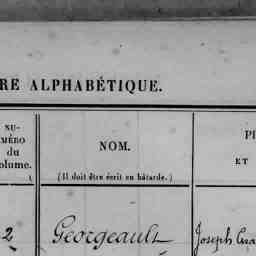 RE ALPHABÉTIQUE.
NU-
MÉRO
du
olume.
NOM.
(Il doit être écrit en bâtarde.)
PR
ET
2
Georgeault
Joseph